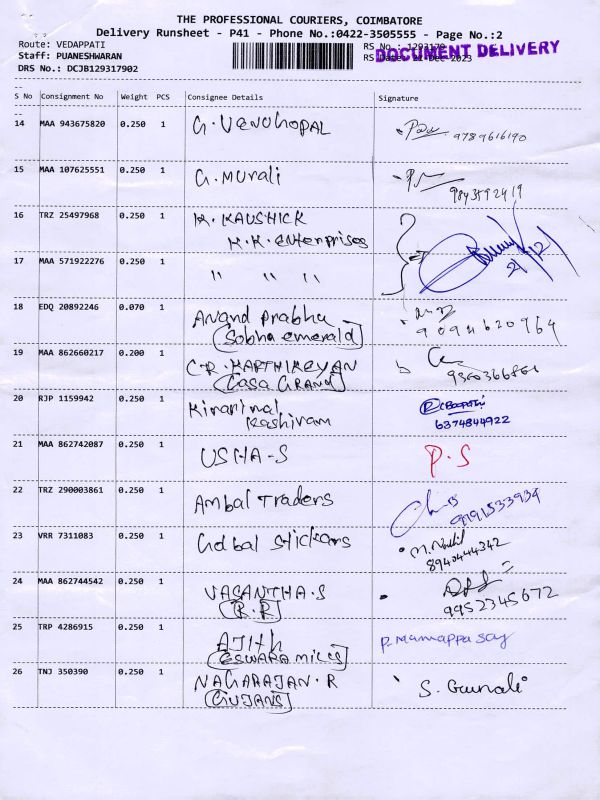 THE PROFESSIONAL COURIERS, COIMBATORE
Delivery Runsheet - P41 - Phone No.:0422-3505555 - Page No.:2
Route: VEDAPPATI
Staff: PUANESHWARAN
DRS No.: DCJB129317902
RS No.:
RS Date: Dec 2023
DOCUMENT DELIVERY
S No Consignment No Weight PCS Consignee Details Signature
14 MAA 943675820 0.250 1 G. VENUGOPAL 9789616190
15 MAA 107625551 0.250 1 G. Murali 9843592419
16 TRZ 25497968 0.250 1 K. KAUSHICK
K.K. Enterprises
17 MAA 571922276 0.250 1 " " " 21/12
18 EDQ 20892246 0.070 1 Anand Prabhu
(Sobha emerald)
19 MAA 862660217 0.200 1 C.R. KARTHIKEYAN
(Casa GRAND)
20 RJP 1159942 0.250 1
Kashiram 6374844922
21 MAA 862742087 0.250 1 USHA-S P.S
22 TRZ 290003861 0.250 1 Ambal Traders
23 VRR 7311083 0.250 1 Golbal Stickers
8940444342
24 MAA 862744542 0.250 1 VASANTHA.S
(R.R) 9952345672
25 TRP 4286915 0.250 1 AJITH
(ESWARA MILLS)
26 TNJ 350390 0.250 1 NAGARAJAN.R S.
(GUJANS)